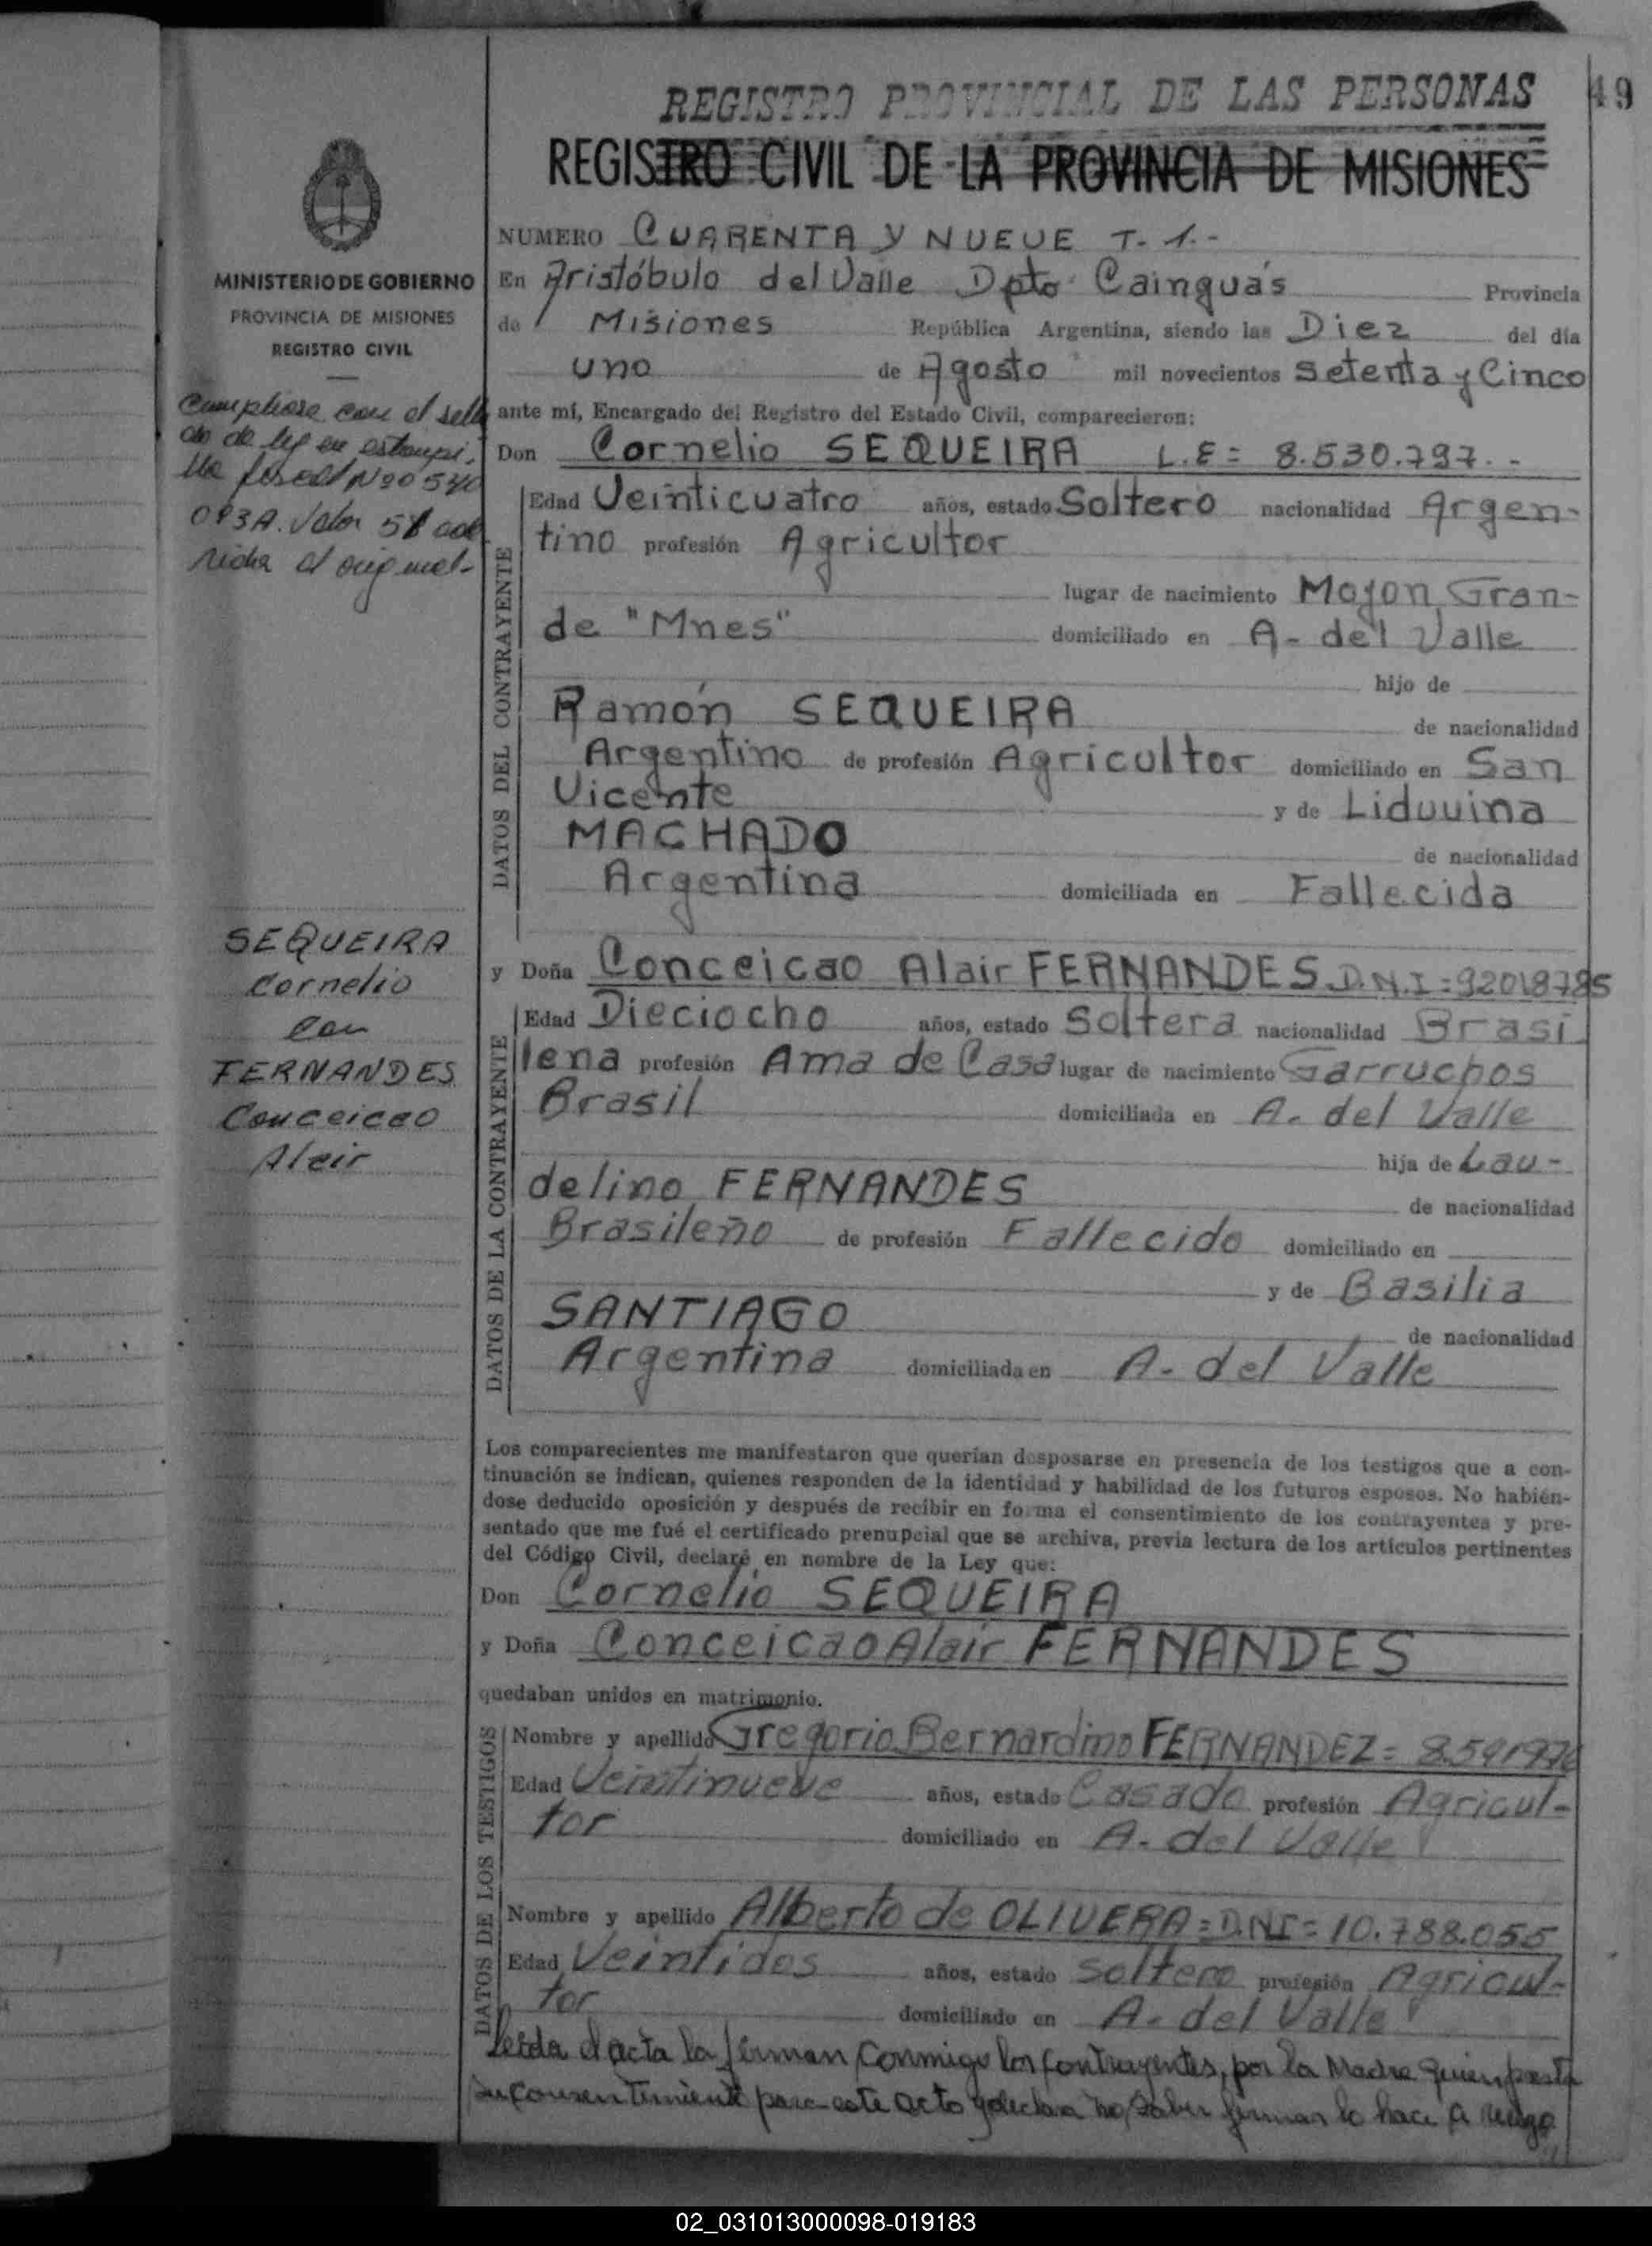 REGISTRO PROVINCIAL DE LAS PERSONAS
49
REGISTRO CIVIL DE LA PROVINCIA DE MISIONES
MINISTERIO DE GOBIERNO
PROVINCIA DE MISIONES
REGISTRO CIVIL
NUMERO CUARENTA Y NUEVE T. 1.-
En Aristóbulo del Valle Dpto Cainguás Provincia
de Misiones República Argentina, siendo las Diez del día
uno de Agosto mil novecientos Setenta y Cinco
ante mí, Encargado del Registro del Estado Civil, comparecieron:
Don Cornelio SEQUEIRA L.E= 8.530.797.-
DATOS DEL CONTRAYENTE
Edad Veinticuatro años, estado Soltero nacionalidad Argen-
tino profesión Agricultor
lugar de nacimiento Mojon Gran-
de "Mnes" domiciliado en A- del Valle
hijo de
Ramón SEQUEIRA de nacionalidad
Argentino de profesión Agricultor domiciliado en San
Vicente y de Liduvina
MACHADO de nacionalidad
Argentina domiciliada en Fallecida
y Doña Conceicao Alair FERNANDES. D.N.I=92018785
DATOS DE LA CONTRAYENTE
Edad Dieciocho años, estado Soltera nacionalidad Brasi
lena profesión Ama de Casa lugar de nacimiento Garruchos
Brasil domiciliada en A. del Valle
hija de Lau-
delino FERNANDES de nacionalidad
Brasileño de profesión Fallecido domiciliado en
y de Basilia
SANTIAGO de nacionalidad
Argentina domiciliada en A- del Valle
Los comparecientes me manifestaron que querían desposarse en presencia de los testigos que a con-
tinuación se indican, quienes responden de la identidad y habilidad de los futuros esposos. No habién-
dose deducido oposición y después de recibir en forma el consentimiento de los contrayentes y pre-
sentado que me fué el certificado prenupcial que se archiva, previa lectura de los artículos pertinentes
del Código Civil, declaré en nombre de la Ley que:
Don Cornelio SEQUEIRA
y Doña Conceicao Alair FERNANDES
quedaban unidos en matrimonio.
DATOS DE LOS TESTIGOS
Nombre y apellido Gregorio Bernardino FERNANDEZ= 8.591976
Edad Veintinueve años, estado Casado profesión Agricul-
tor domiciliado en A. del Valle
Nombre y apellido Alberto de OLIVERA= D.NI= 10.788.055
Edad Veintidos años, estado Soltero profesión Agricul-
tor domiciliado en A. del Valle
Leida el acta la firman conmigo los contrayentes, por la Madre quien presta
su consentimiento para este acto y declara no saber firmar lo hace a ruego
Cumpliose con el sella
do de ley en estampi-
lla fiscal Nº0540
093A. Valor
al original-
SEQUEIRA
Cornelio
con
FERNANDES
Conceicao
Alair
02_031013000098-019183